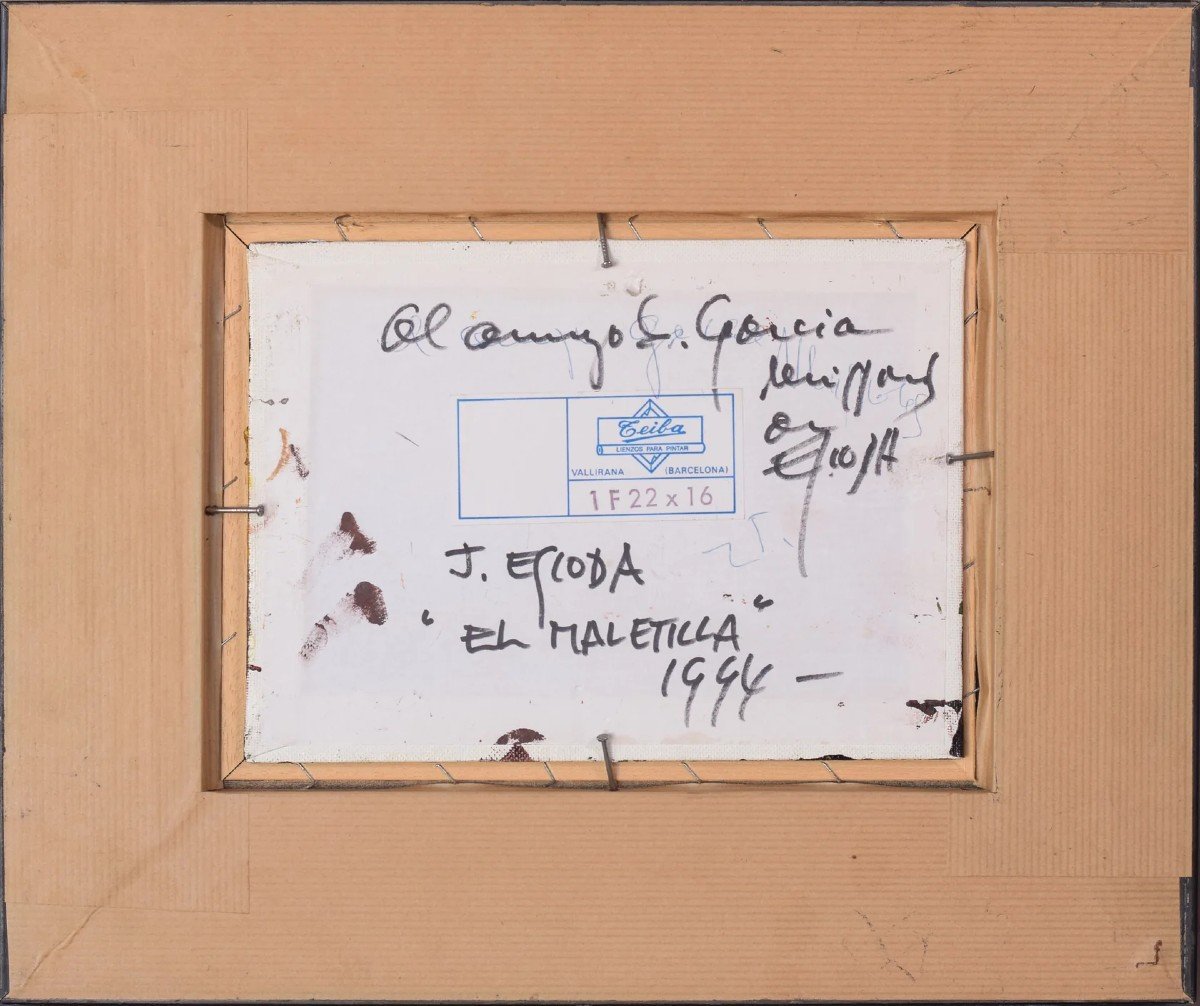 Al amigo S. Garcia
Teiba
LIENZOS PARA PINTAR
VALLIRANA (BARCELONA)
1 F 22 x 16
J. ESCODA
"EL MALETILLA"
1994 —